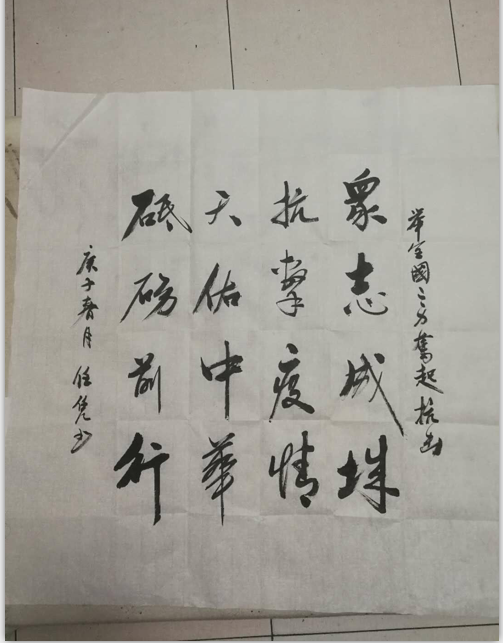 举全國之力奮起抗击
眾志成城
抗擊疫情
天佑中華
砥砺前行
庚子春月 任书